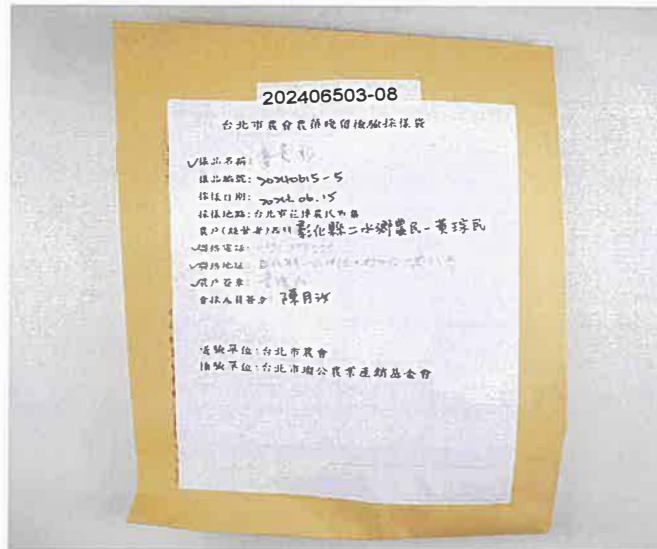 202406503-08
台北市農會農藥殘留檢驗採樣袋
✓樣品名稱:
樣品編號: 20240615-5
採樣日期: 2024.06.15
採樣地點: 台北市花博農民市集
農戶(經營者)名稱 彰化縣二水鄉農民-黃琮民
✓聯絡電話:
✓聯絡地址:
✓農戶簽章:
會採人員簽名: 陳月
送驗單位: 台北市農會
抽驗單位: 台北市瑠公農業產銷基金會